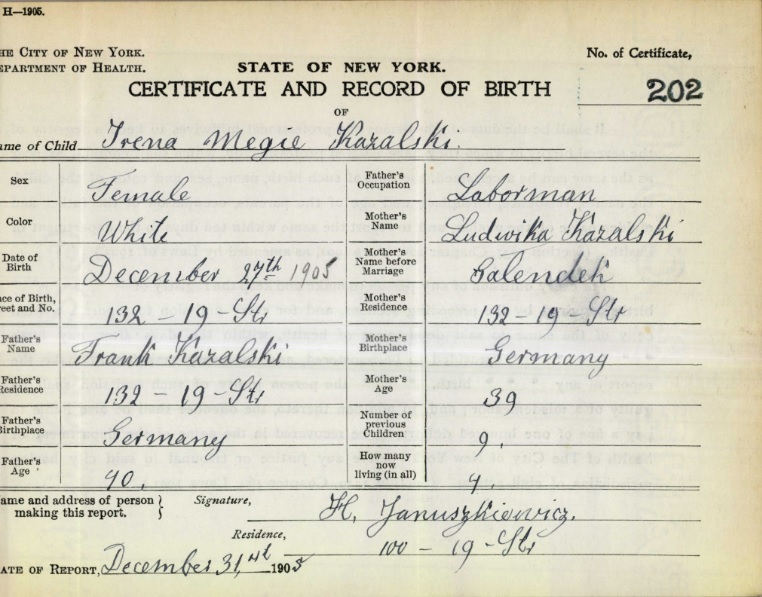 H—1905.
HE CITY OF NEW YORK.
EPARTMENT OF HEALTH.
STATE OF NEW YORK.
No. of Certificate,
CERTIFICATE AND RECORD OF BIRTH
202
OF
ame of Child Irena Megie Kazalski.
Sex Female
Father's Occupation Laborman
Color White
Mother's Name Ludwika Kazalski
Date of Birth December 27th 1905
Mother's Name before Marriage Kalendek
ce of Birth, eet and No. 132 – 19 – Str
Mother's Residence 132 – 19 – Str
Father's Name Frank Kazalski
Mother's Birthplace Germany
Father's Residence 132 – 19 – Str
Mother's Age 39
Father's Birthplace Germany
Number of previous Children 9.
Father's Age 40.
How many now living (in all)
ame and address of person making this report.
Signature, H. Januszkiewicz.
Residence, 100 – 19 – Str
ATE OF REPORT, December 31, 1905